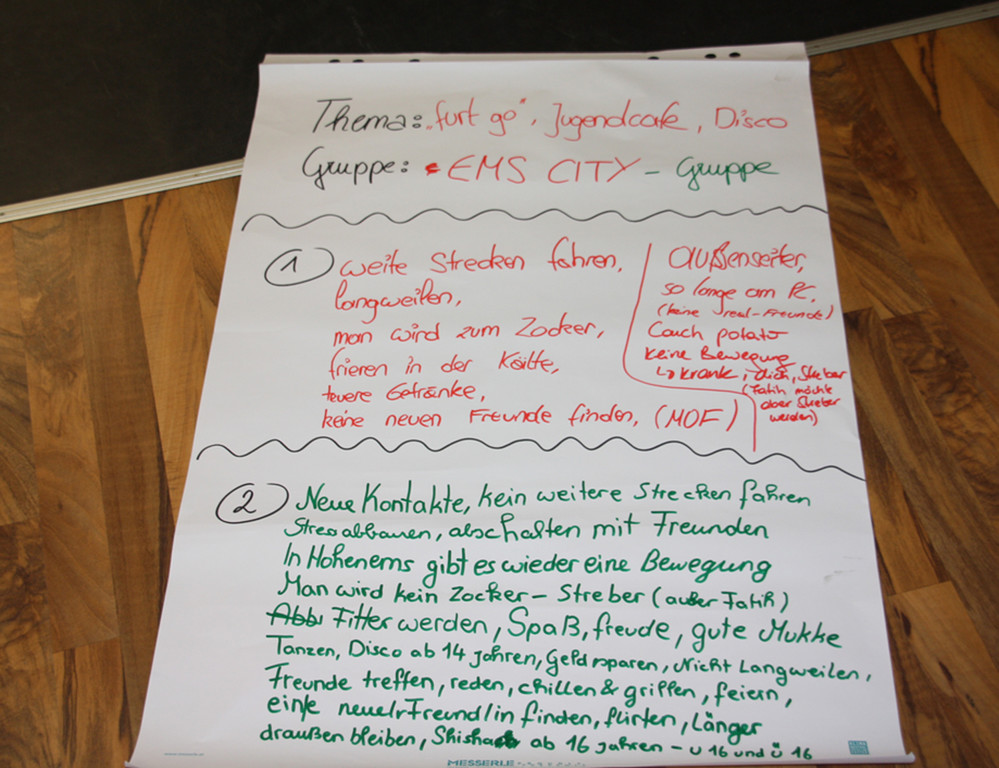 Thema: „furt go", Jugendcafe, Disco
Gruppe: EMS CITY – Gruppe
1 weite Strecken fahren,
langweilen,
man wird zum Zocker,
frieren in der Kälte,
teuere Getränke,
keine neuen Freunde finden, (MOF)
außenseiter,
so lange am PC,
(keine real-Freunde)
Couch potato
keine Bewegung
↳ krank, dick, Streber
(Fatih möchte
aber Streber
werden)
2 Neue Kontakte, kein weitere Strecken fahren
Stress abbauen, abschalten mit Freunden
In Hohenems gibt es wieder eine Bewegung
Man wird kein Zocker – Streber (außer Fatih)
Fitter werden, Spaß, freude, gute Mukke
Tanzen, Disco ab 14 Jahren, Geld sparen, Nicht Langweilen,
Freunde treffen, reden, chillen & grillen, feiern,
ein/e neue/r Freund/in finden, flirten, Länger
draußen bleiben, Shisha ab 16 Jahren – u 16 und ü 16
MESSERLE